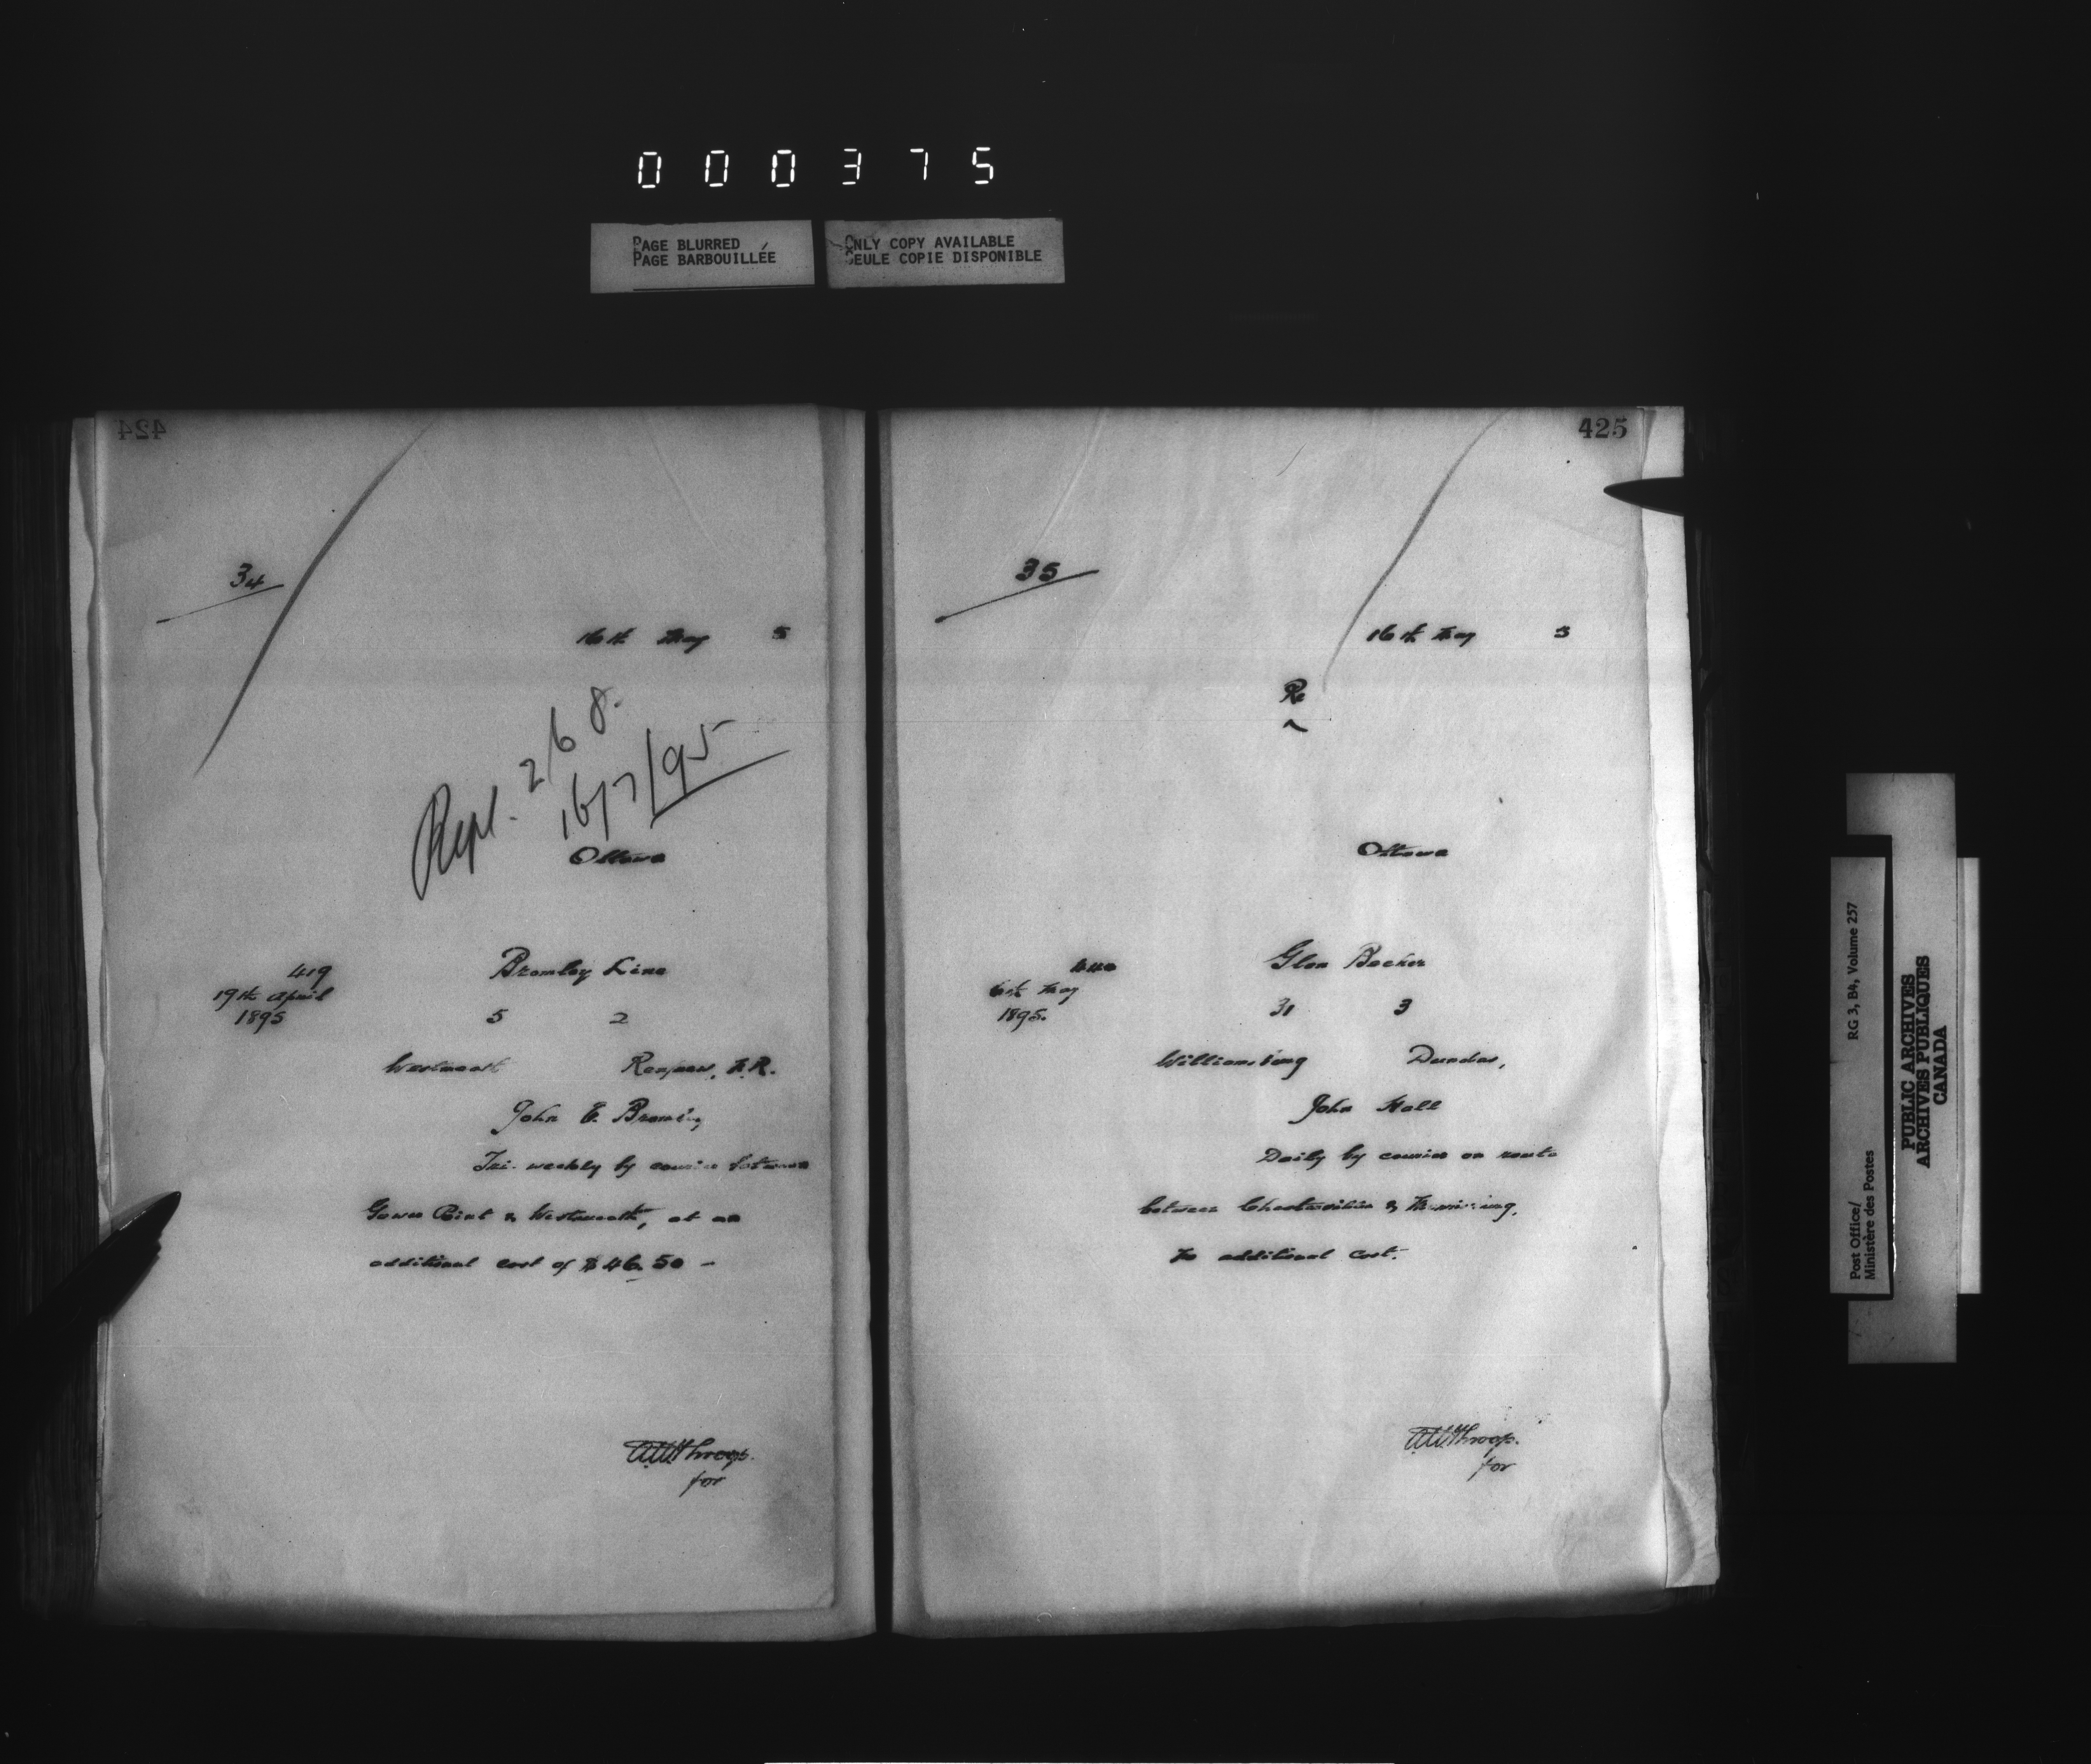 000375
PAGE BLURRED
PAGE BARBOUILLÉE
ONLY COPY AVAILABLE
SEULE COPIE DISPONIBLE
424
34
16th May 5
Repl. 268.
16/7/95
Ottawa
419
19th April
1895
Bromley Line
5 2
Westmeath Renfrew, N.R.
John E. Browning
Tri-weekly by courier between
Gower Point & Westmeath, at an
additional cost of $46.50 -
AWThroop.
for
425
35
16th May 5
Re
Ottawa
440
6th May
1895.
Glen Becker
31 3
Williamsburg Dundas,
John Hall
Daily by courier on route
between & Morrisburg,
No additional cost.
AWThroop.
for
Post Office/
Ministère des Postes
RG 3, B4, Volume 257
PUBLIC ARCHIVES
ARCHIVES PUBLIQUES
CANADA